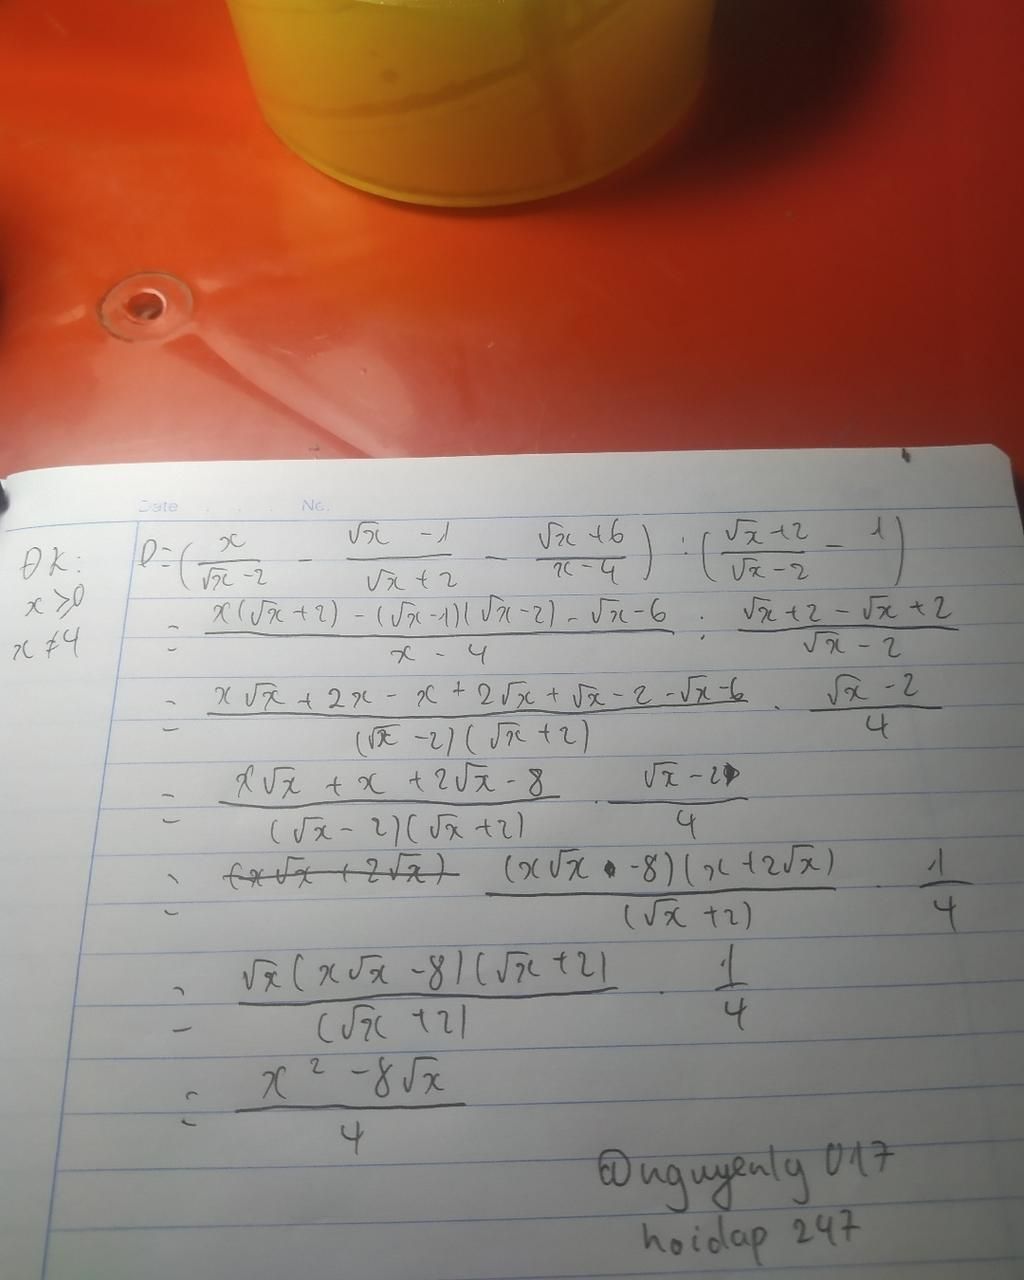 Date . . . No.
ĐK:
x ≥ 0
x ≠ 4
P = (x/(√x - 2) - (√x - 1)/(√x + 2) - (√x + 6)/(x - 4)) : ((√x + 2)/(√x - 2) - 1)
= (x(√x + 2) - (√x - 1)(√x - 2) - √x - 6)/(x - 4) : (√x + 2 - √x + 2)/(√x - 2)
= (x√x + 2x - x + 2√x + √x - 2 - √x - 6)/((√x - 2)(√x + 2)) . (√x - 2)/4
= (x√x + x + 2√x - 8)/((√x - 2)(√x + 2)) . (√x - 2)/4
= (x√x + 2√x) ((x√x - 8)(x + 2√x))/(√x + 2) . 1/4
= (√x(x√x - 8)(√x + 2))/(√x + 2) . 1/4
= (x² - 8√x)/4
@nguyenly 017
hoidap 247